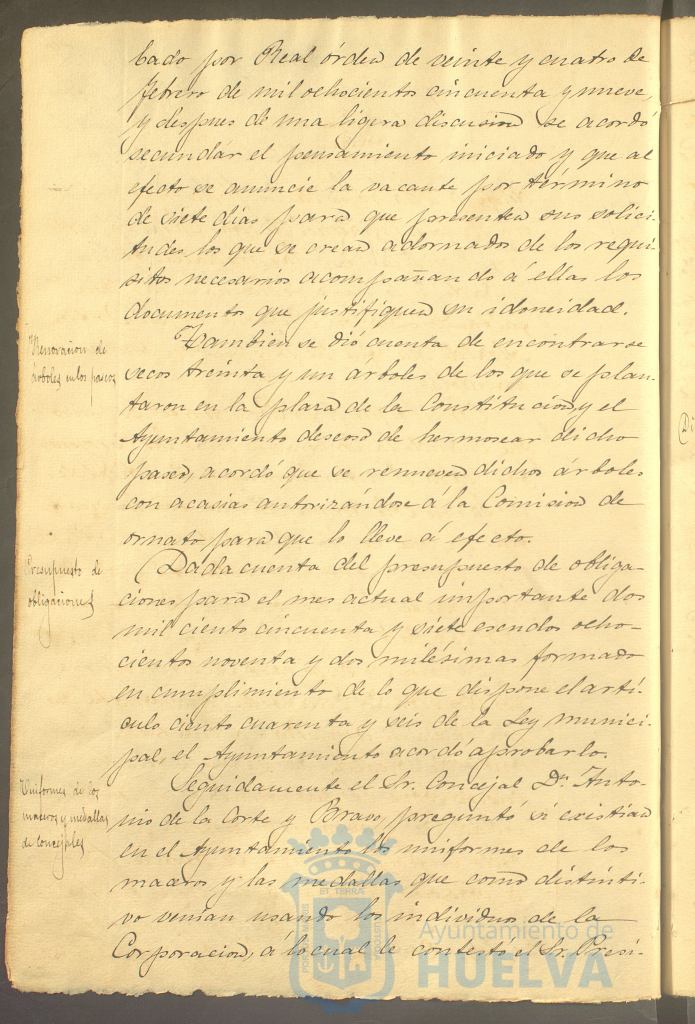 bado por Real órden de veinte y cuatro de
febrero de mil ochocientos cincuenta y nueve,
y despues de una ligera discusion se acordó
secundar el pensamiento iniciado y que al
efecto se anuncie la vacante por término
de siete dias para que presenten sus solici-
tudes los que se crean adornados de los requi-
sitos necesarios acompañando á ellas los
documento que justifiquen su idoneidad.
Renovacion de
árboles en los paseos
Tambien se dió cuenta de encontrarse
secos treinta y un árboles de los que se plan-
taron en la plaza de la Constitucion, y el
Ayuntamiento deseoso de hermosear dicho
paseo, acordó que se renueven dichos árboles
con acasias autorizándose á la Comision de
ornato para que lo lleve á efecto.
Presupuesto de
obligaciones
Dada cuenta del presupuesto de obliga-
ciones para el mes actual importante dos
mil ciento cincuenta y siete escudos ocho-
cientos noventa y dos milésimas formado
en cumplimiento de lo que dispone el artí-
culo ciento cuarenta y seis de la Ley munici-
pal, el Ayuntamiento acordó aprobarlo.
Uniformes de los
maceros y medallas
de concejales
Seguidamente el Sr. Concejal Dn. Anto-
nio de la Corte y Bravo preguntó si existian
en el Ayuntamiento los uniformes de los
maceros y las medallas que como distinti-
vo venian usando los individuos de la
Corporacion, á lo cual le contestó el Sr. Presi-
Ayuntamiento de
HUELVA